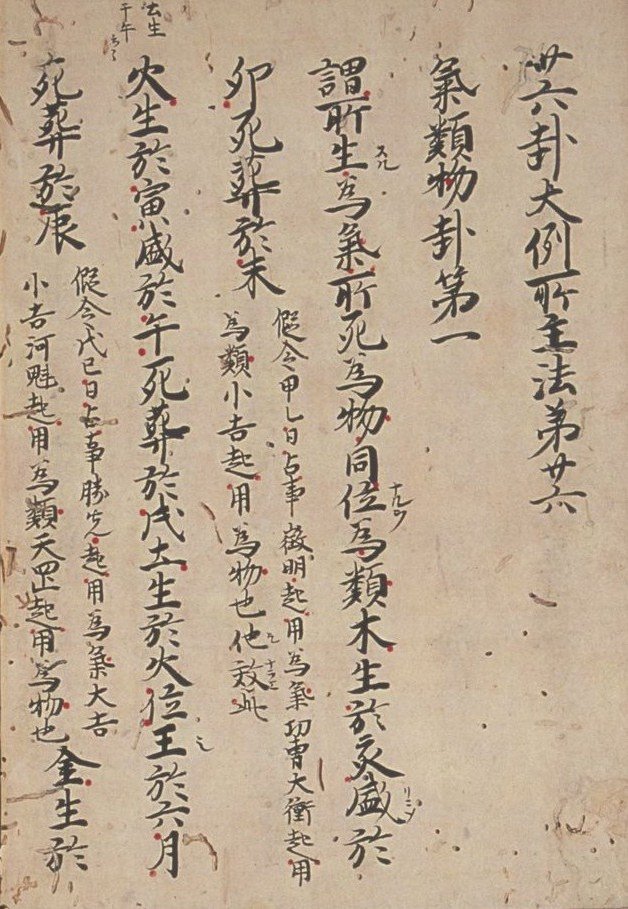 卅六卦大例所主法第廿六
氣類物卦第一
謂所生為氣所死為物同位為類木生於亥盛於
卯死葬於未
假令甲乙日占事徴明起用為氣功曹大衝起用
為類小吉起用為物也他效此
火生於寅盛於午死葬於戌土生於火位王於六月
死葬於辰
假令戊己日占事勝先起用為氣大吉
小吉河魁起用為類天罡起用為物也
金生於